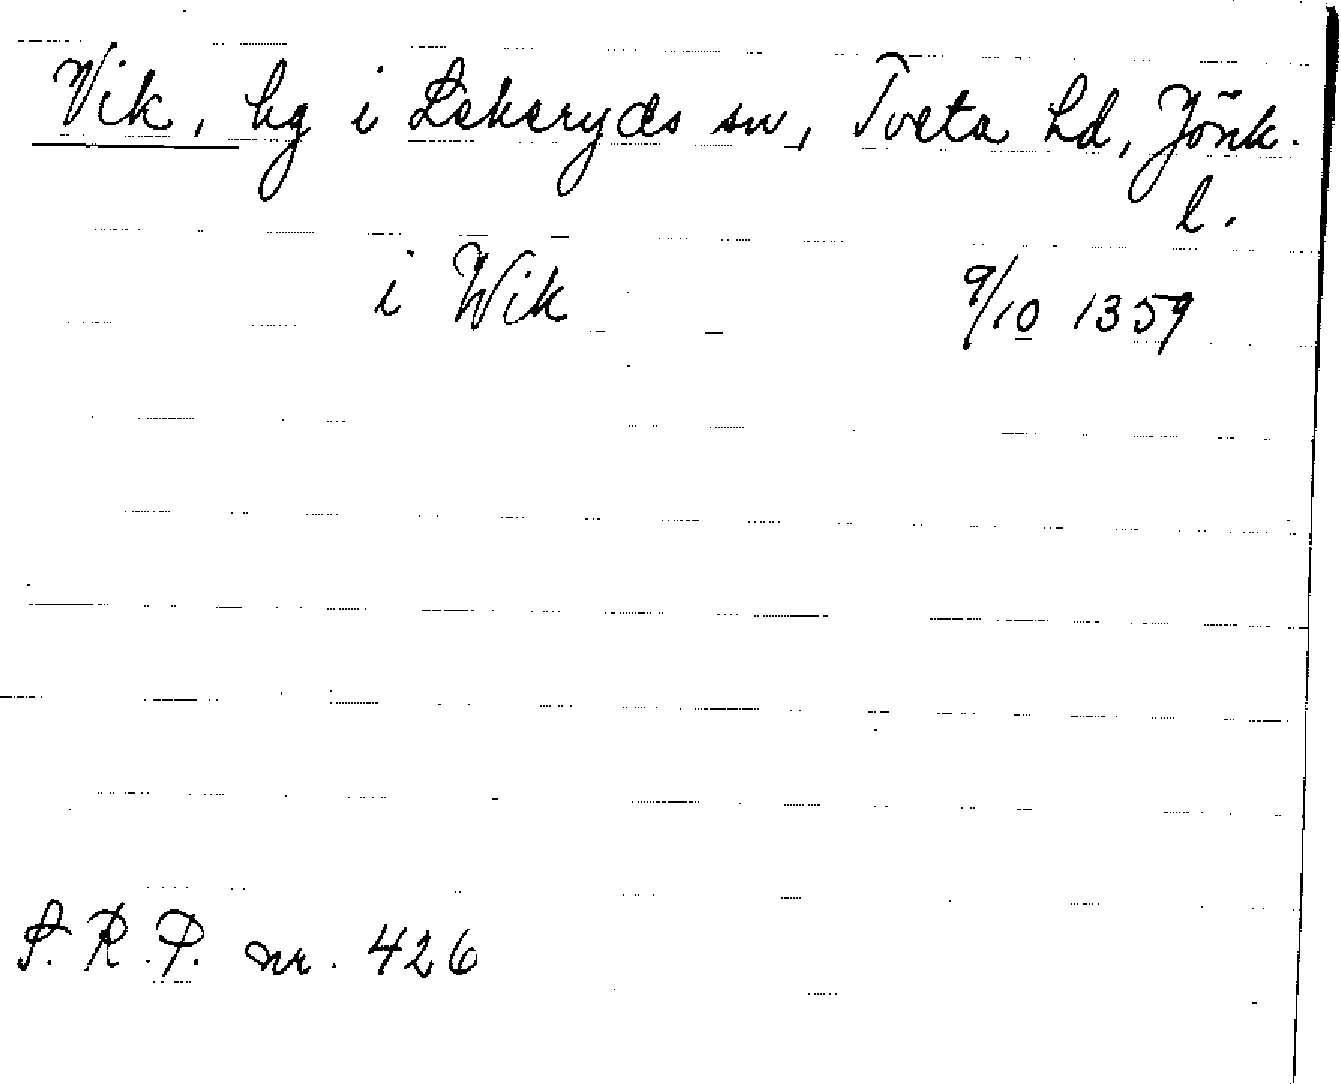 Vik, hg i Lekeryds sn, Tveta hd, Jönk.
l.
i Wik 9/10 1359
S.R.P. nr. 426